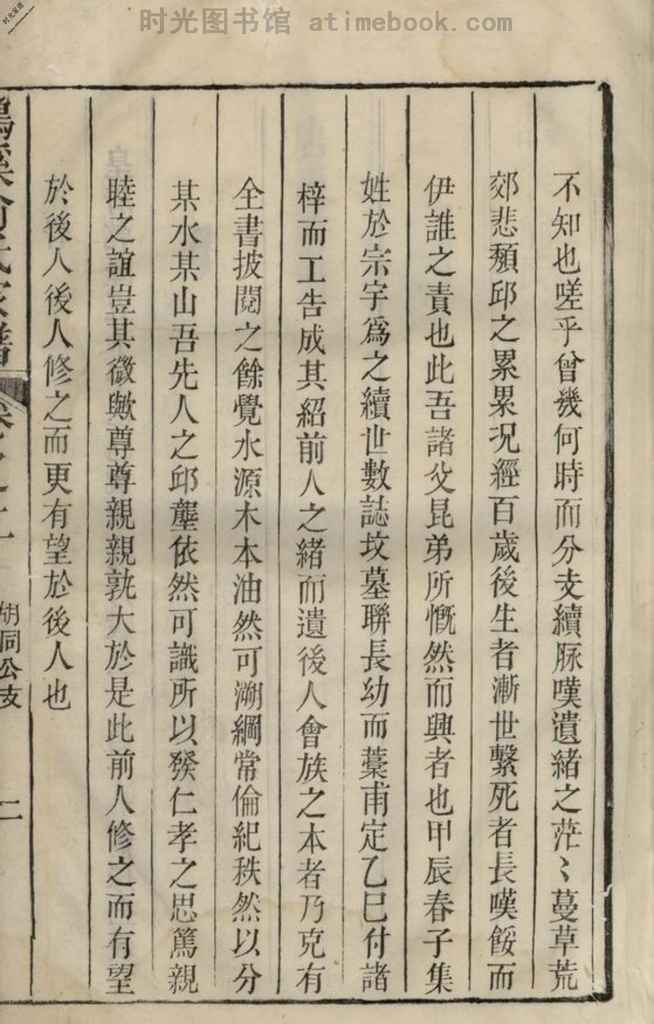 时光图书馆 - atimebook.com
不知也嗟乎曾幾何時而分支續脉嘆遺緒之茫〻蔓草荒
郊悲頽邱之累累况經百歲後生者漸世繫死者長嘆餒而
伊誰之責也此吾諸父昆弟所慨然而興者也甲辰春子集
姓於宗字爲之續世數誌坟墓聯長幼而藁甫定乙巳付諸
梓而工告成其紹前人之緒而遺後人會族之本者乃克有
全書披閱之餘覺水源木本油然可溯綱常倫紀秩然以分
某水某山吾先人之邱壟依然可識所以發仁孝之思篤親
睦之誼豈其微歟尊尊親親孰大於是此前人修之而有望
於後人後人修之而更有望於後人也
俞氏家譜
胡同公支
二